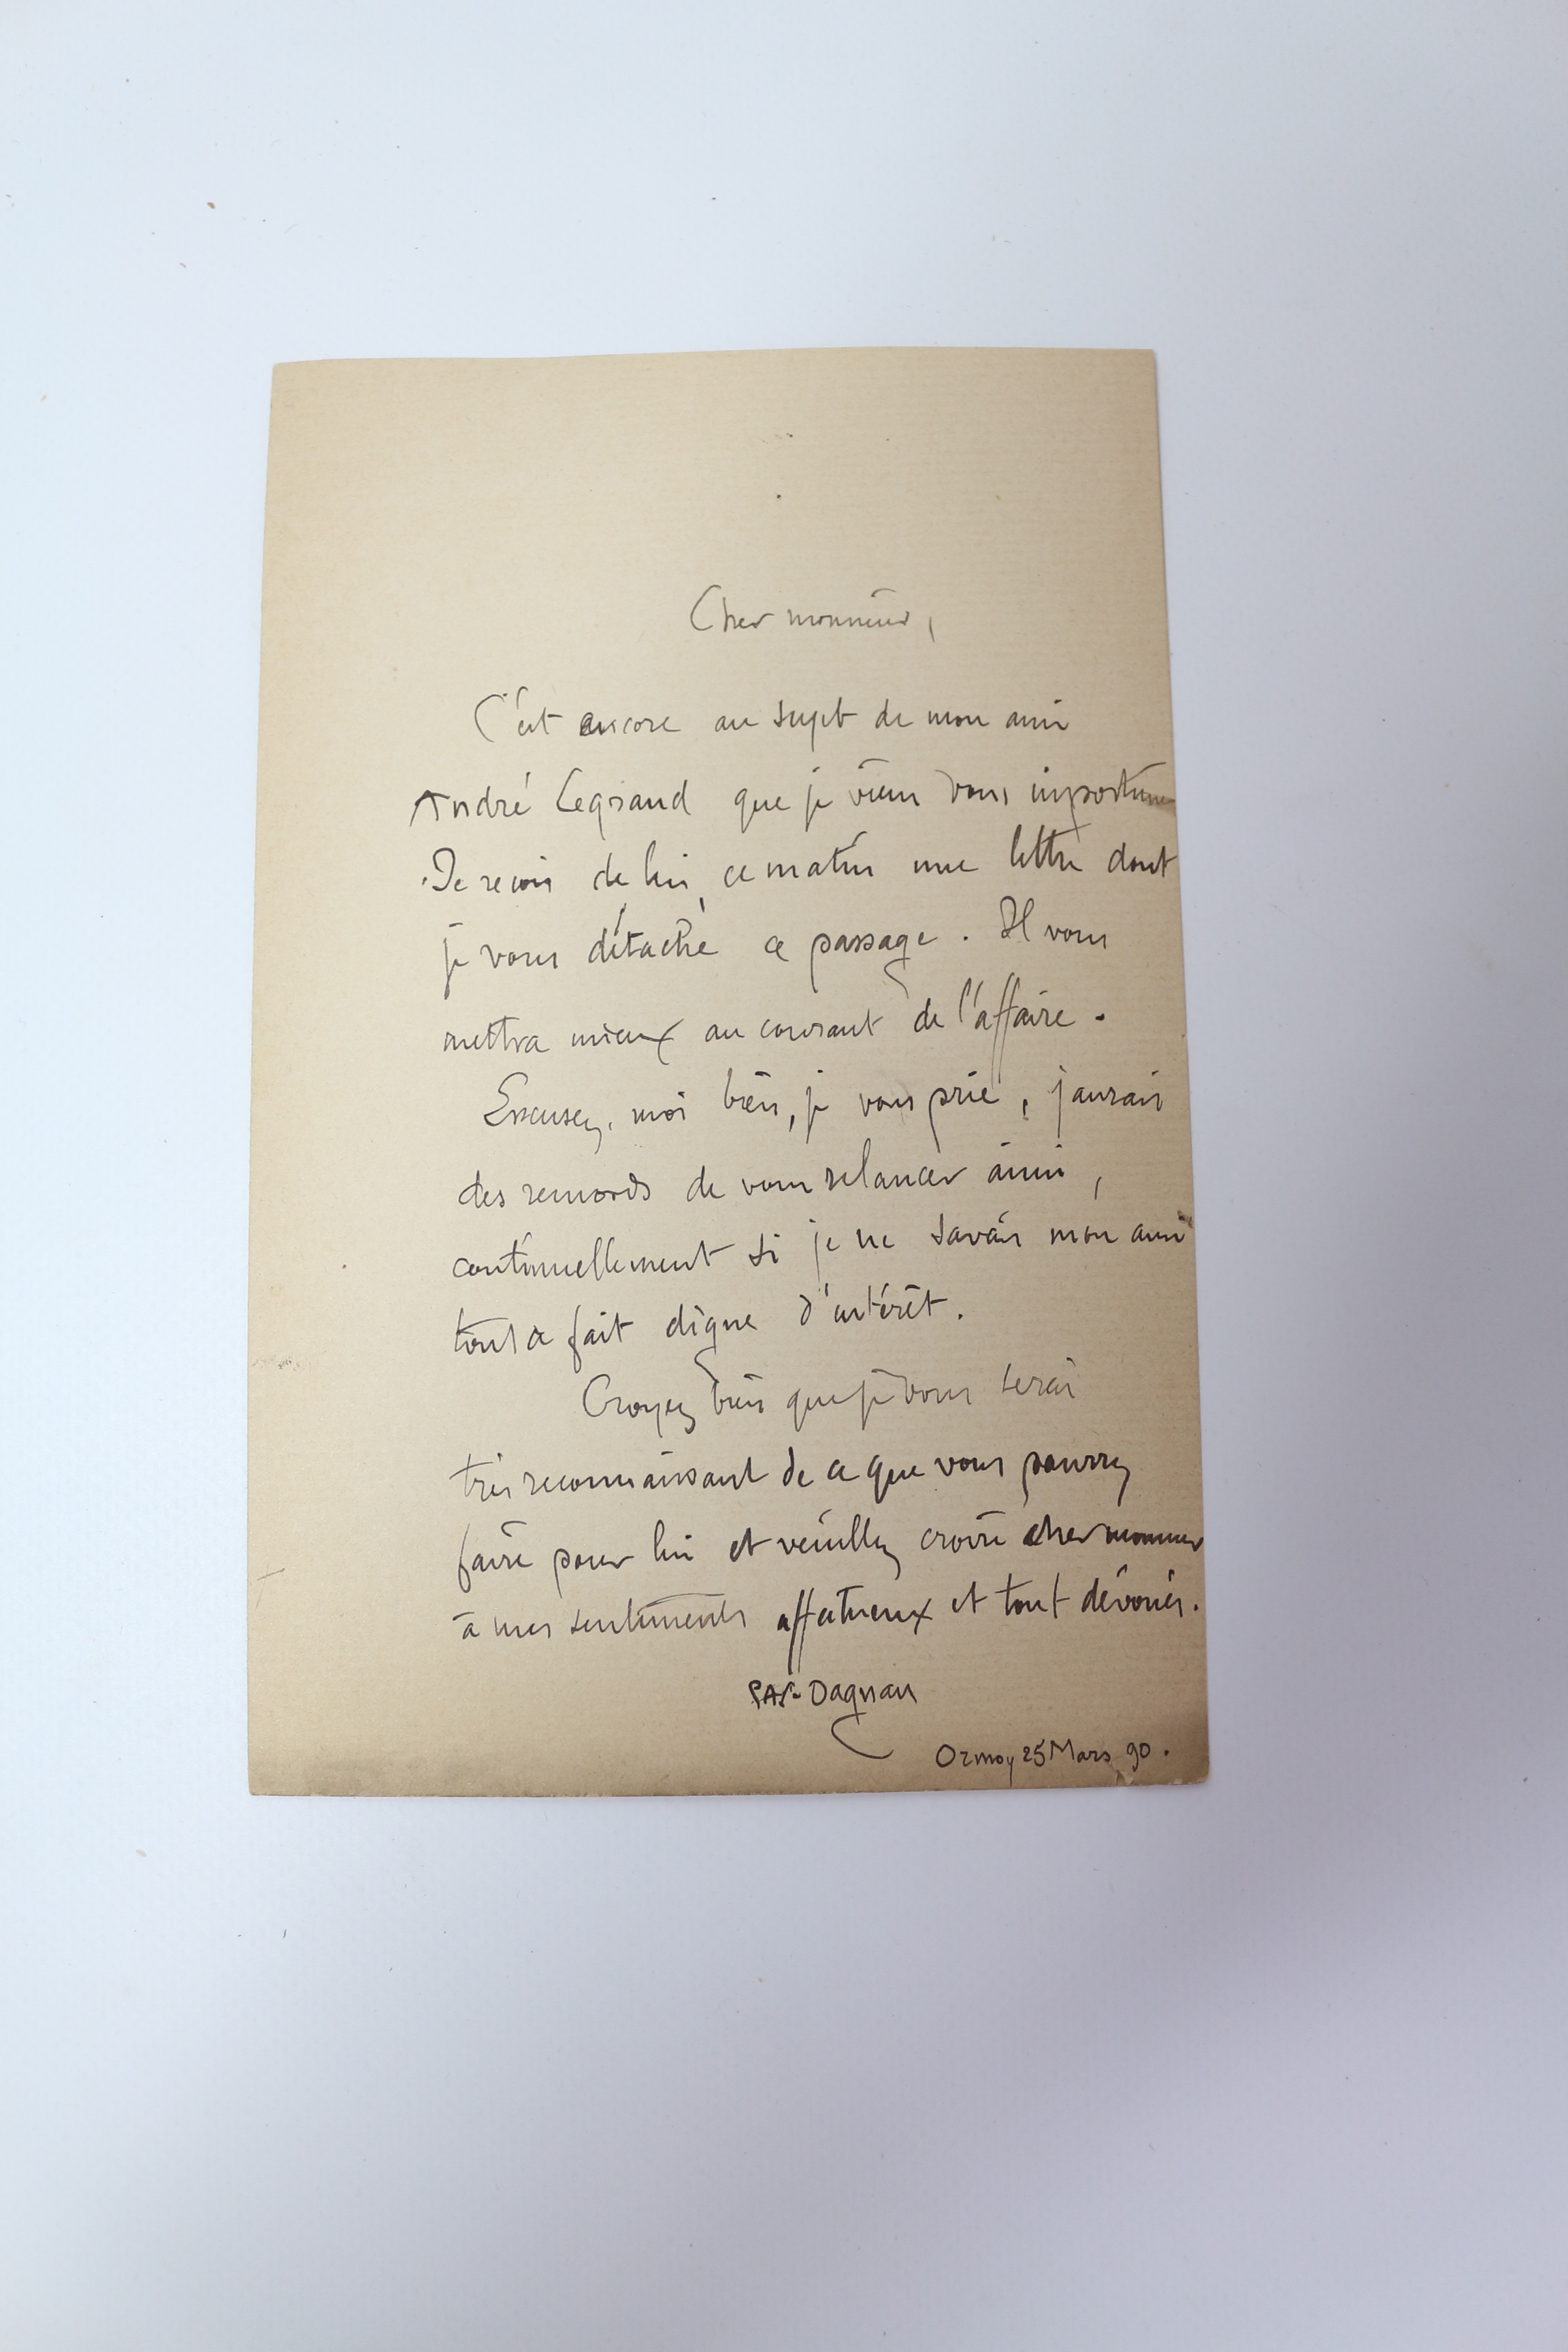 Cher monsieur,
C'est encore au sujet de mon ami
André Legrand que je viens vous importuner
Je reçois de lui, ce matin une lettre dont
je vous détache ce passage. Il vous
mettra mieux au courant de l'affaire.
Excusez-moi bien, je vous prie, j'aurais
des remords de vous relancer ainsi,
continuellement si je ne savais mon ami
tout à fait digne d'intérêt.
Croyez bien que je vous serai
très reconnaissant de ce que vous pourrez
faire pour lui et veuillez croire cher monsieur
à mes sentiments affectueux et tout dévoués.
PAJ-Dagnan
Ormoy 25 Mars 90.